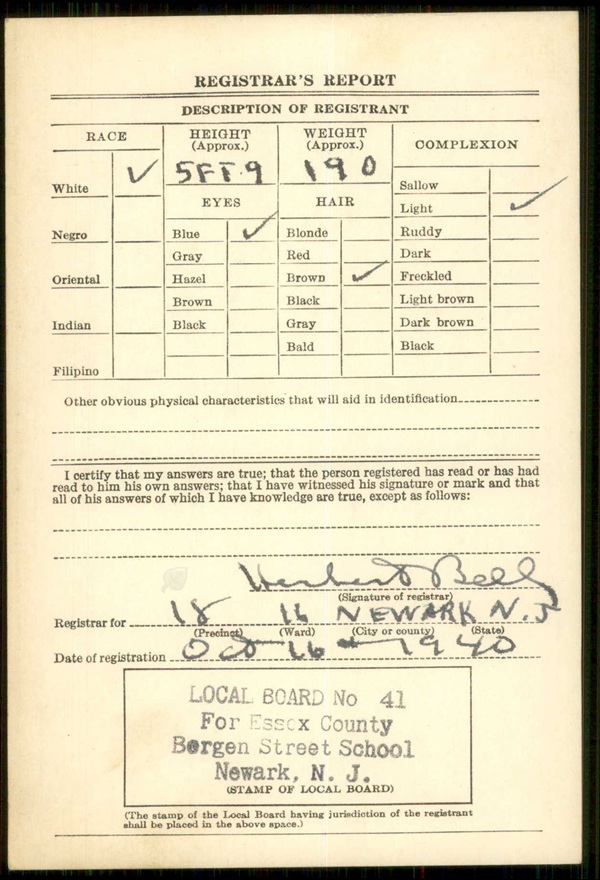 REGISTRAR'S REPORT
DESCRIPTION OF REGISTRANT
RACE
HEIGHT
(Approx.)
WEIGHT
(Approx.)
COMPLEXION
White ✓
5 FT. 9
190
Sallow
EYES
HAIR
Light ✓
Negro
Blue ✓
Blonde
Ruddy
Gray
Red
Dark
Oriental
Hazel
Brown ✓
Freckled
Brown
Black
Light brown
Indian
Black
Gray
Dark brown
Bald
Black
Filipino
Other obvious physical characteristics that will aid in identification
I certify that my answers are true; that the person registered has read or has had
read to him his own answers; that I have witnessed his signature or mark and that
all of his answers of which I have knowledge are true, except as follows:
Herbert Bell
(Signature of registrar)
Registrar for 18 16 NEWARK N.J
(Precinct) (Ward) (City or county) (State)
Date of registration Oct 16 - 1940
LOCAL BOARD No 41
For Essex County
Bergen Street School
Newark, N. J.
(STAMP OF LOCAL BOARD)
(The stamp of the Local Board having jurisdiction of the registrant
shall be placed in the above space.)